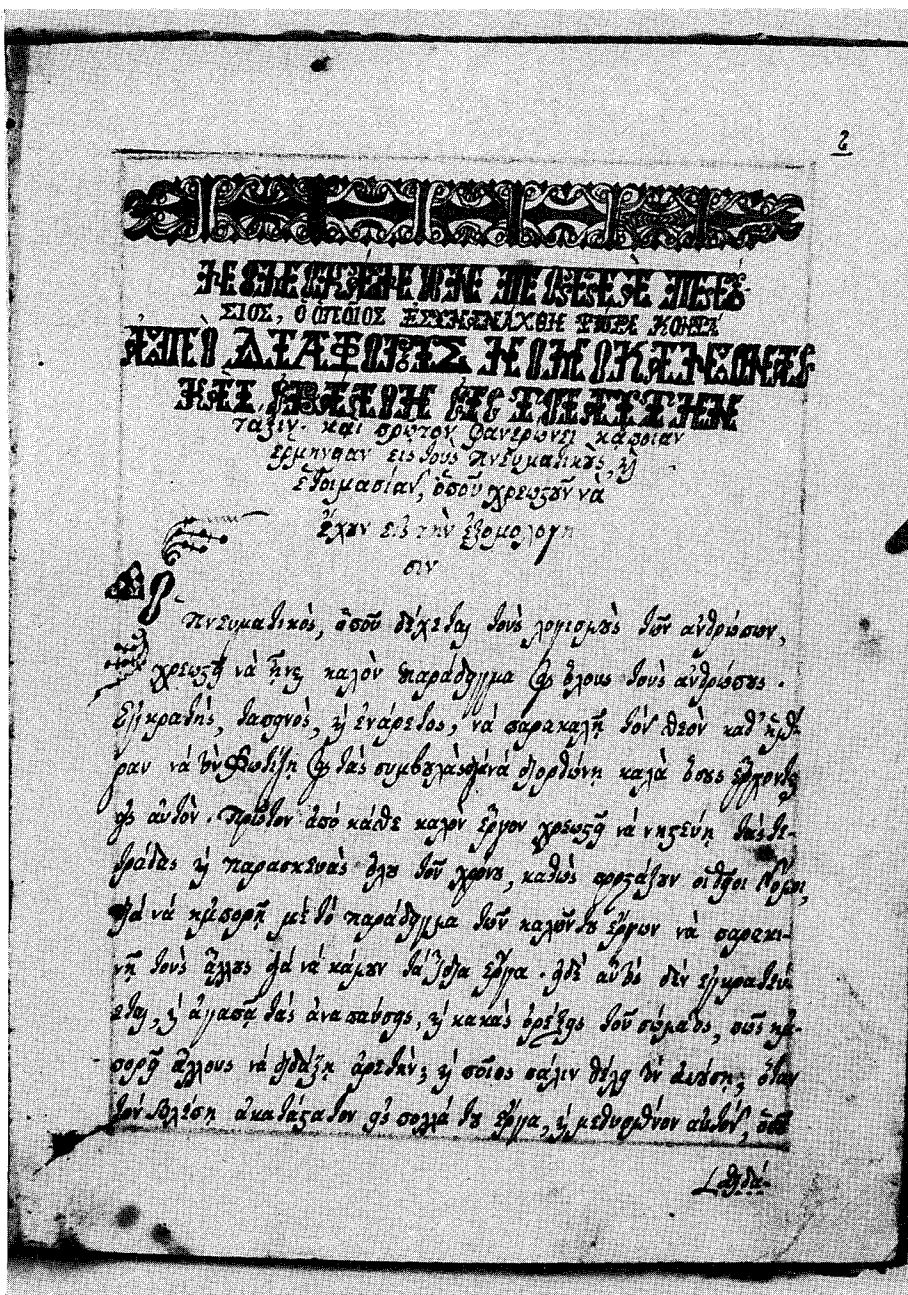 ΝΟΜΟΚΑΝΟΝ ΠΕΡΕΕΧΟ ΠΛΟΥ
ΣΙΟΣ, Ὁ ΟΠΟΙΟΣ ΕΣΥΝΑΝΑΧΘΗ ΤΩΡΑ ΚΟΝΤΑ
ΑΠΟ ΔΙΑΦΟΡΟΥΣ ΝΟΜΟΚΑΝΟΝΑΣ
ΚΑΙ ΕΒΑΛΘΗ ΕΙΣ ΤΟΙΑΥΤΗΝ
τάξιν. καὶ πρῶτον φανερώνει κάποιαν
ἑρμηνείαν εἰς τοὺς πνευματικοὺς, καὶ
ἑτοιμασίαν, ὁποῦ χρεωστοῦν νὰ
ἔχουν εἰς τὴν ἐξομολόγη
σιν
Ὁ Πνευματικὸς, ὁποῦ δέχεται τοὺς λογισμοὺς τῶν ἀνθρώπων,
χρεωστεῖ νὰ ἦναι καλὸν παράδειγμα εἰς ὅλους τοὺς ἀνθρώπους.
Ἐγκρατὴς, ταπεινὸς, καὶ ἐνάρετος, νὰ παρακαλῇ τὸν θεὸν καθ' ἡμέ
ραν νὰ τὸν φωτίζῃ εἰς τὰς συμβουλὰς διὰ νὰ διορθώνῃ καλὰ ὅσους ἔρχονται
εἰς αὐτὸν. Πρῶτον ἀπὸ κάθε καλὸν ἔργον χρεωστεῖ νὰ νηστεύῃ τὰς τε-
τράδας καὶ παρασκευὰς ὅλου τοῦ χρόνου, καθὼς προστάζουν οἱ θεῖοι Νόμοι,
διὰ νὰ ἠμπορῇ μὲ τὸ παράδειγμα τῶν καλῶν του ἔργων νὰ παρακι-
νῇ τοὺς ἄλλους διὰ νὰ κάμουν τὰ ἴδια ἔργα. εἰδὲ αὐτὸς δὲν ἐγκρατεύ
εται, καὶ ἀγαπᾷ τὰς ἀναπαύσεις, καὶ κακὰς ὀρέξεις τοῦ σώματος, πῶς ἠμ
πορεῖ ἄλλους νὰ διδάξῃ ἀρετὴν; καὶ ποῖος πάλιν θέλει τὸν ἀκούσῃ, ὅταν
τὸν βλέπῃ ἀκατάστατον εἰς πολλά του ἔργα, καὶ μεθυσμένον αὐτὸν, ὁποῦ